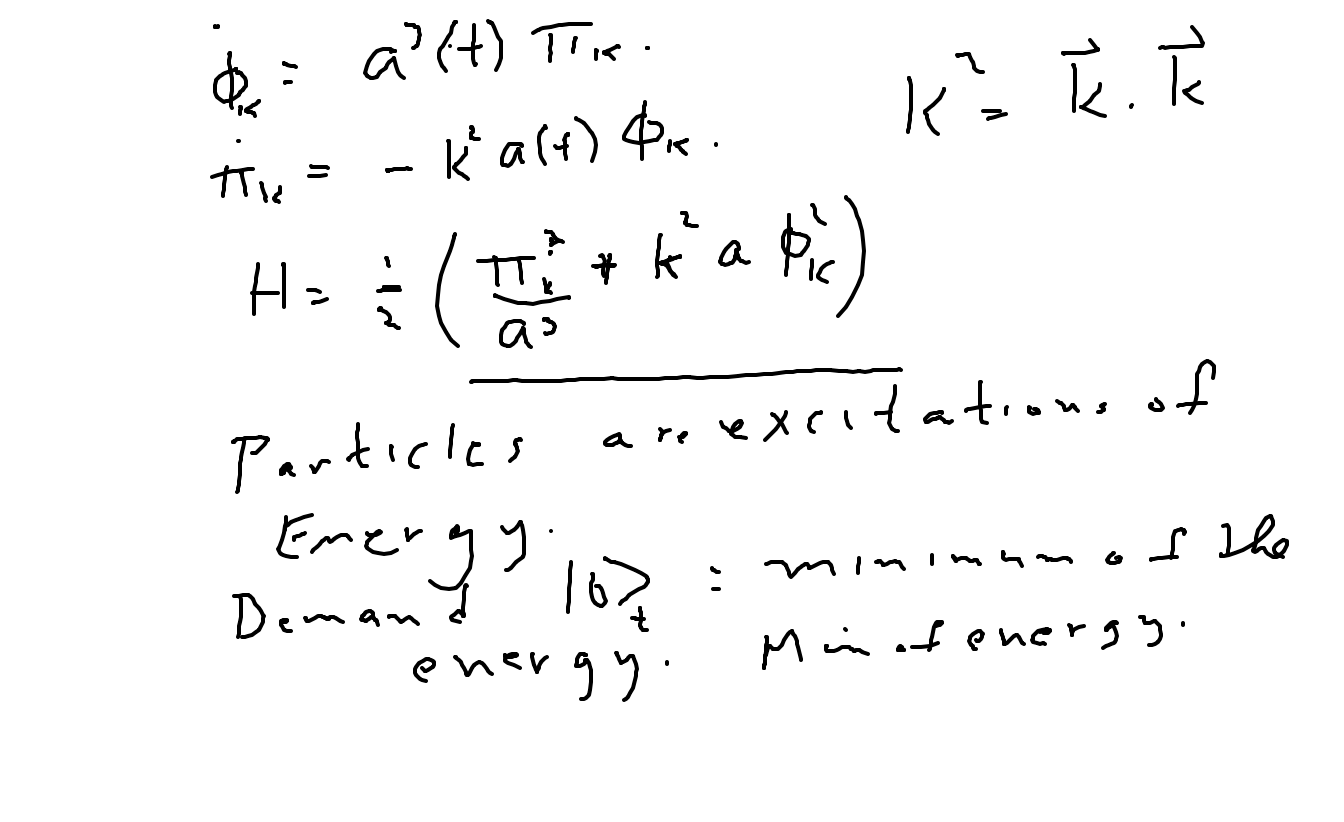 ϕ̇ₖ = a³(t) πₖ. k² = k⃗ . k⃗
π̇ₖ = - k² a(t) ϕₖ.
H = 1/2 ( πₖ²/a³ + k² a ϕₖ² )
Particles are excitations of
Energy.
Demand |0>ₜ = minimum of the
energy. Min of energy.